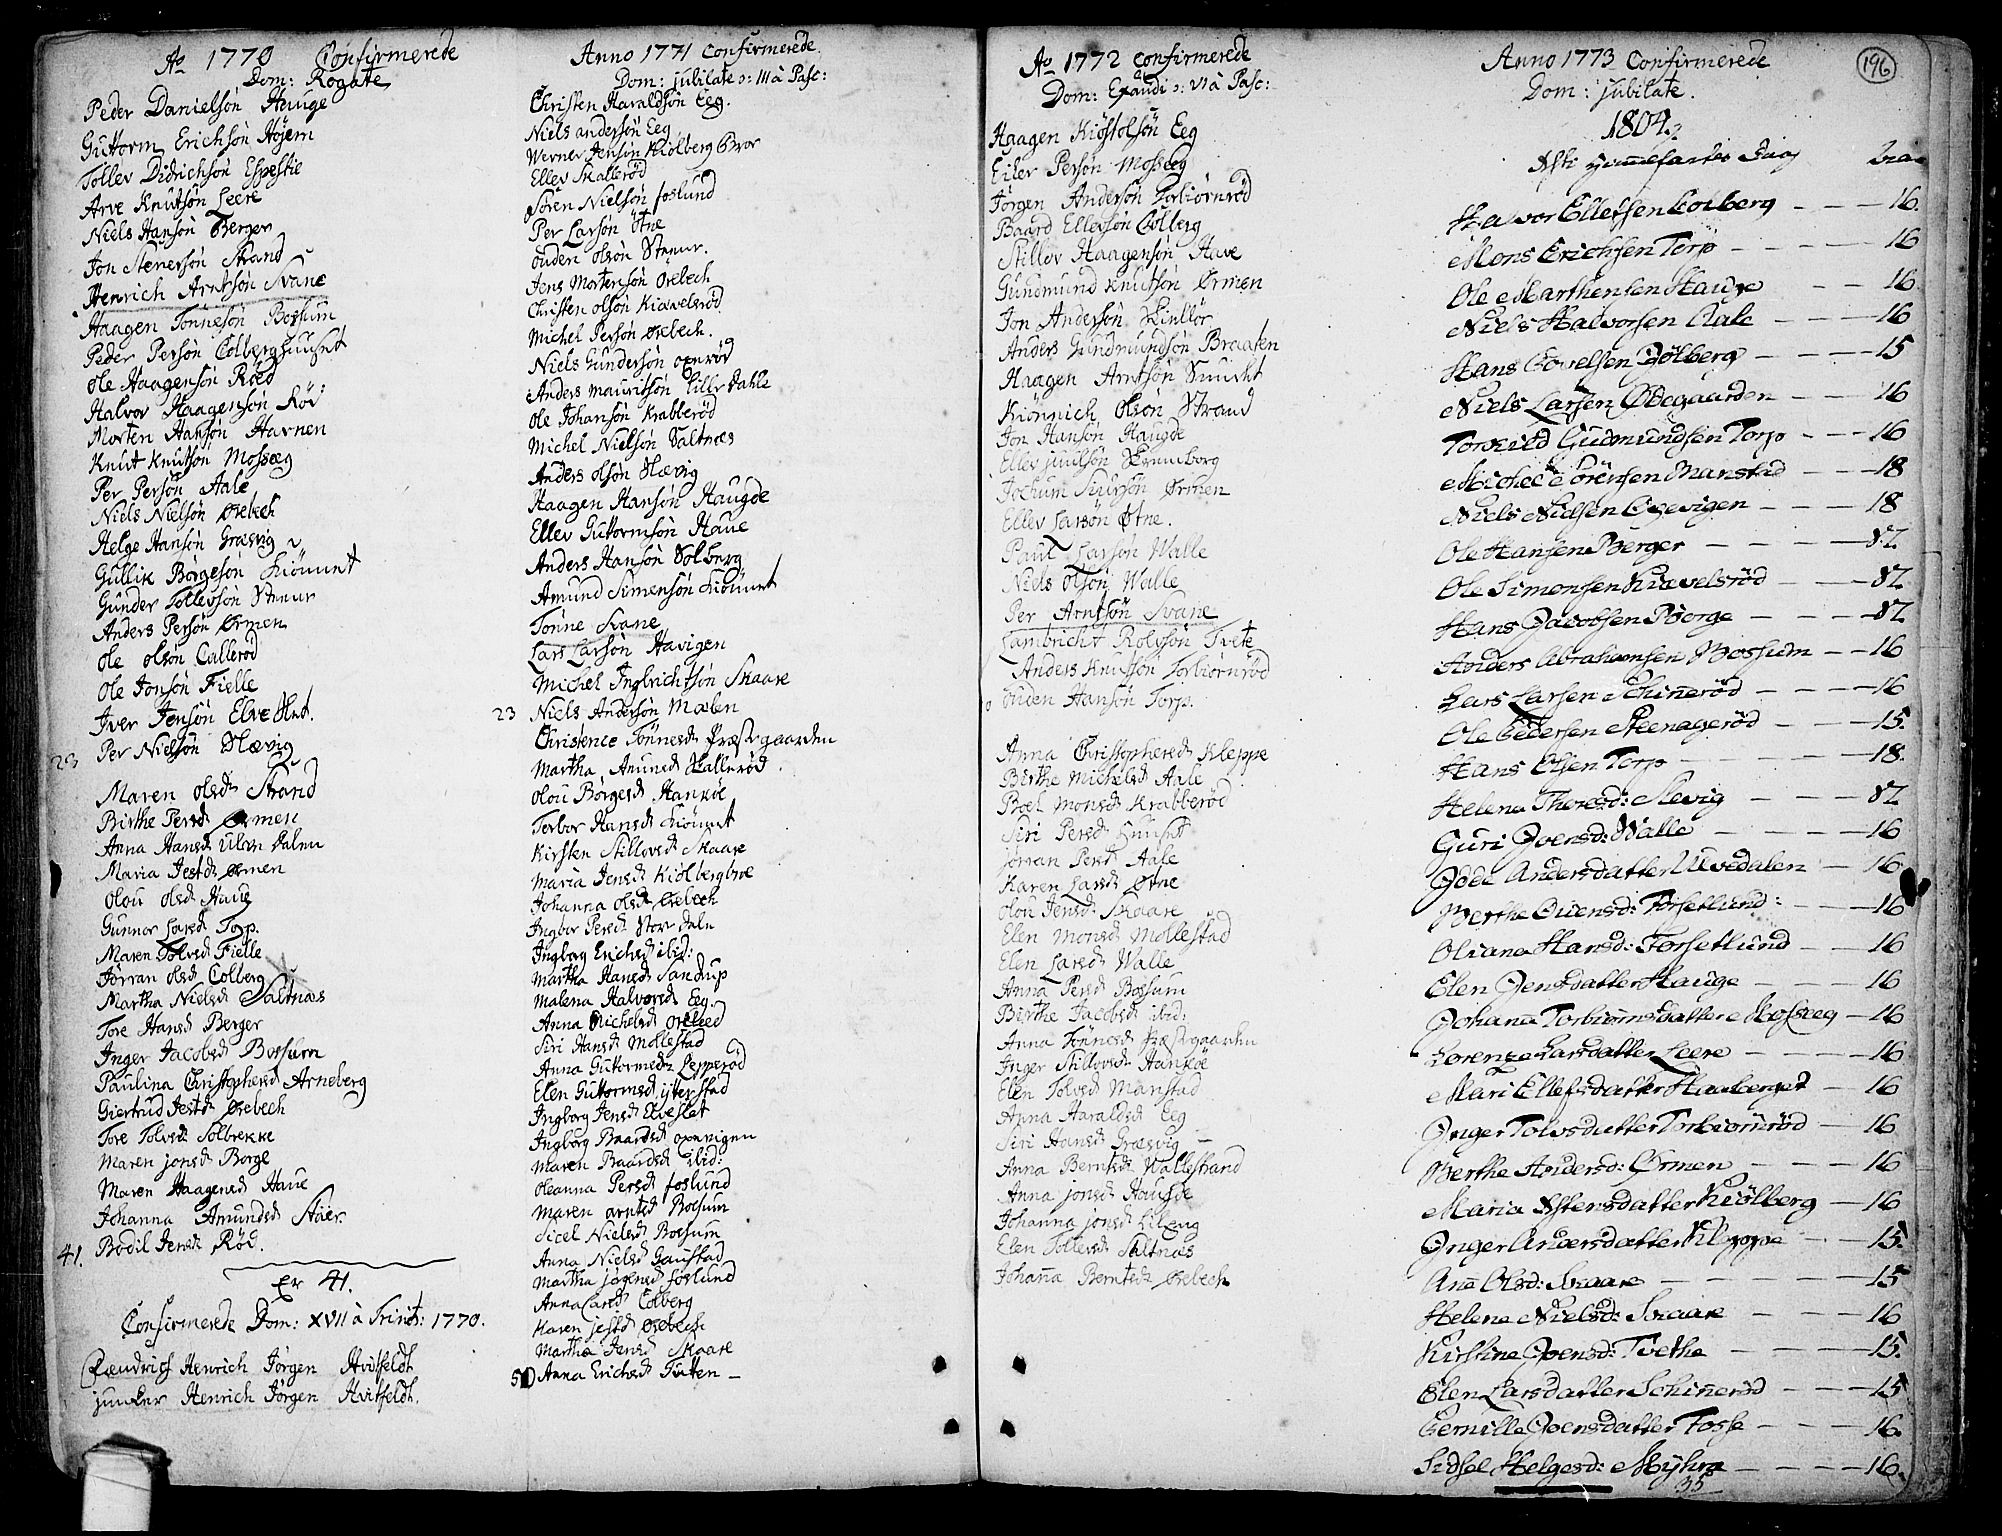 Ao 1770 Confirmerede
Dom: Rogate
Peder Danielsön Hauge
Guttorm Erichsön Höjem
Tollev Didrichsön Espestie
Arve Knutsön Leere
Niels Hansön Berger
Jon Stenersön Strand
Henrich Arntsön Svane
Haagen Tönnesön Bossum
Peder Persön Colberghuuset
Ole Haagensön Röed
Halvor Haagensön Röd
Morten Hansön Havnen
Knut Knutsön Mosseeg
Per Persön Aale
Niels Nielsön Örebech
Helge Hansön Græsvig
Gullik Börgesön Kiönnet
Gunder Tollevsön Stenur
Anders Persön Ørmen
Ole olsön Calleröd
Ole Jonsön Fielle
Iver Jensön Elveslet.
23 Per Nielsön Slævig
Maren olsd. Strand
Birthe Persd. Ørmen
Anna Hansd. Ulven dalen
Maria Jestd. Ørmen
Olou olsd. Haug
Gunnor Larsd. Torp.
Maren Tolvsd. Fielle
Jörran olsd. Colberg
Martha Nielsd. Saltnæs
Tore Hansd. Berger
Inger Jacobsd. Bossum
Paulina Christophersd. Arneberg
Giertrud Jestd. Ørebech
Tore Tolvsd. Solbrekke
Maren jonsd. Borge
Maren Haagensd. Haue
Johanna Amundsd. Stöer
41. Bodil Jensd. Röd.
Er 41.
Confirmerede Dom: XVII à Trinit: 1770.
Henrich Jörgen Hvitfeldt
junker Henrich Jörgen Hvitfeldt.
Anno 1771 Confirmerede.
Dom: jubilate ɔ: III à Pasc:
Christen Haraldsön Eeg.
Niels andersön Eeg
Werner Jensön Kiölberg Broe
Ellev Skalleröd
Sören Nielsön foslund
Per Larsön Ötne
ouden olsön Stenur.
Jens Mortensön Ørebech
Christen olsön Kiævelsröd
Michel Persön Ørebech.
Niels Gundersön openröd
Anders Mauritsön lille Dahle
Ole Johansön Krabberöd
Michel Nielsön Saltnæs
Anders olsön Slævig
Haagen Hansön Haugde
Ellev Guttormsön Haue
Anders Hansön Solberg
Amund Simensön Kiönnet
Tönne Svane
Lars Larsön Havigen
Michel Inglrichtsön Skaare
23 Niels Andersön Mælen
Christence Tönnesd. Præstegaarden
Martha Amunsd. Skalleröd.
Olou Börgesd. Hankøe
Torbor Hansd. Kiönnet
Kirsten Stillovsd. Skaare
Maria Jensd. Kiölbergbroe
Johanna olsd. Ørebech
Ingbor Persd. Storr dale
Ingborg Erichsd. ibid:
Martha Hansd. Sandrup
Malena Halvorsd. Eeg.
Anna Michelsd.
Siri Hansd. Mollestad
Anna Guttormsd. Lepperöd
Elen Guttormsd. ytterstad
Ingborg Jensd. Elveslet
Ingborg Baardsd. openvigen
Maren Baardsd. ibid:
Oleanna Persd. foslund
Maren arntsd. Bossum
Sicel Nielsd. Bossum
Anna Nielsd. Gaustad
Martha jörgensd. foslund
Anna Larsd. Colberg
Karen jestd. Ørebech
Martha Jensd. Skaare
50 Anna Erichsd. Tutten
Ao 1772 Confirmerede
Dom: Exaudi ɔ: VI à Pasc:
Haagen Kiöstolsön Eeg
Eiler Persön Mosseeg
Jörgen Andersön Torbiörnröd
Baard Ellevsön Colberg
Stillov Haagensön Have
Gundmund Knutsön Ørmen
Jon Andersön
Anders Gundmundsön Braaten
Haagen Arntsön
Kiönnich olsön Strand
Jon Hansön Haugde
Ellev juulsön
Jochum Siursön Ørmen
Ellev Larsön Øtne.
Paul Larsön Walle
Niels olsön Walle
Per Arntsön Svane
Lambricht Rolvsön Tvete
Anders Knutsön Torbiörnröd
Ouden Hansön Torp.
Anna Christophersd. Kleppe
Birthe Michelsd. Aale
Boel Monsd. Krabberöd
Siri Persd. Huuset
Jörran Persd. Aale
Karen Larsd. Øtne
Olou Jensd. Skaare
Elen Monsd. Mollestad
Elen Larsd. Walle
Anna Persd. Bossum
Birthe Jacobsd. ibid:
Anna Tönnesd. Præstegaarden
Inger Stillovsd. Hankøe
Elen Tolvsd. Manstad
Anna Haraldsd. Eeg
Siri Hansd. Græsvig
Anna Berntsd. Wallestrand
Anna jonsd. Haugde
Johanna jonsd. Lileng
Elen Tollevsd. Saltnæs
Johanna Berntsd. Ørebech
Anno 1773 Confirmerede
Dom: jubilate.
196
1804.
Halvor Ellefsen Colberg - - - 16.
Mons Erichsen Torp - - - 16
Ole Marthensen Hauge - - 16.
Niels Halvorsen Aale - - - 16
Hans Povelsen Kjölberg - - - 15
Niels Larsen Ødegaarden - - 16
Torkild Gudmundsen Torp - - 16
Michel Sörensen Manstad - - 18
Niels Nielsen - - - 18
Ole Hansen Berger - - - 17.
Ole Simonsen Kiævelsröd - - 17.
Hans Jacobsen Borge - - - 17.
Anders Abrahamsen Bossum - - 16
Lars Larsen Schineröd - - - 16
Ole Pedersen Steenageröd - - - 15.
Hans Olsen Torp - - - 18.
Helena Thoresd: Slevig - - - 17
Guri Joensd: Walle - - - 16
Andersdatter Ulvedalen - 16.
Berthe Ouensd: Torsetlund: - - 16
Oliana Hansd: Torsetlund - - 16
Elen Jensdatter Hauge - - - 16
Johana Torbiörnsdatter Mosseeg - 16
Lorenze Larsdatter Leere - - - 16
Mari Ellefsdatter Haaberget - 16
Inger Tolvsdatter Torbiörnröd - 16
Berthe Andersd: Ørmen - - - 16
Maria Estensdatter Kiölberg - 16
Inger Andersdatter Kleppe - - 15.
Ane Olsd: Skaare - - - 15
Helene Nielsd: Skaare - - - 16
Kirstine Joensd: Tvethe - - - 15.
Elen Larsdatter Schineröd - - - 15
Pernille Joensdatter Fosse - - - 16.
Sidsel Helgesd: Myhra - - - 16.
35